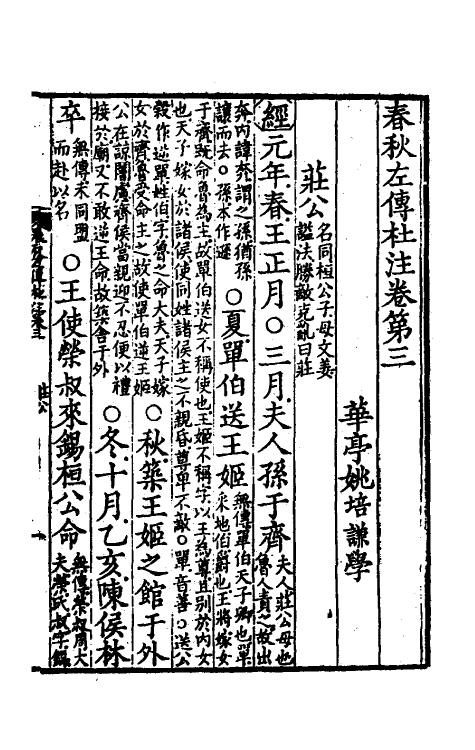 春秋左傳杜注卷第三
華亭姚培謙學
莊公名同桓公子母文姜諡法勝敵克亂曰莊
經元年春王正月○三月夫人孫于齊夫人莊公母也魯人責之故出
奔內諱奔謂之孫猶孫讓而去○孫本作遜○夏單伯送王姬無傳單伯天子卿也單采地伯爵也王將嫁女
于齊既命魯為主故單伯送女不稱使也王姬不稱字以王為尊且別於內女也天子嫁女於諸侯使同姓諸侯主之不親昏尊卑不敵○單音善○送公
穀作逆單姓伯字魯之命大夫天子嫁女於齊魯受命主之故使單伯逆王姬○秋築王姬之館于外
公在諒闇慮齊侯當親迎不忍便以禮接於廟又不敢逆王命故築舍于外○冬十月乙亥陳侯林
卒無傳未同盟而赴以名○王使榮叔來錫桓公命無傳榮叔周大夫榮氏叔字錫
莊公